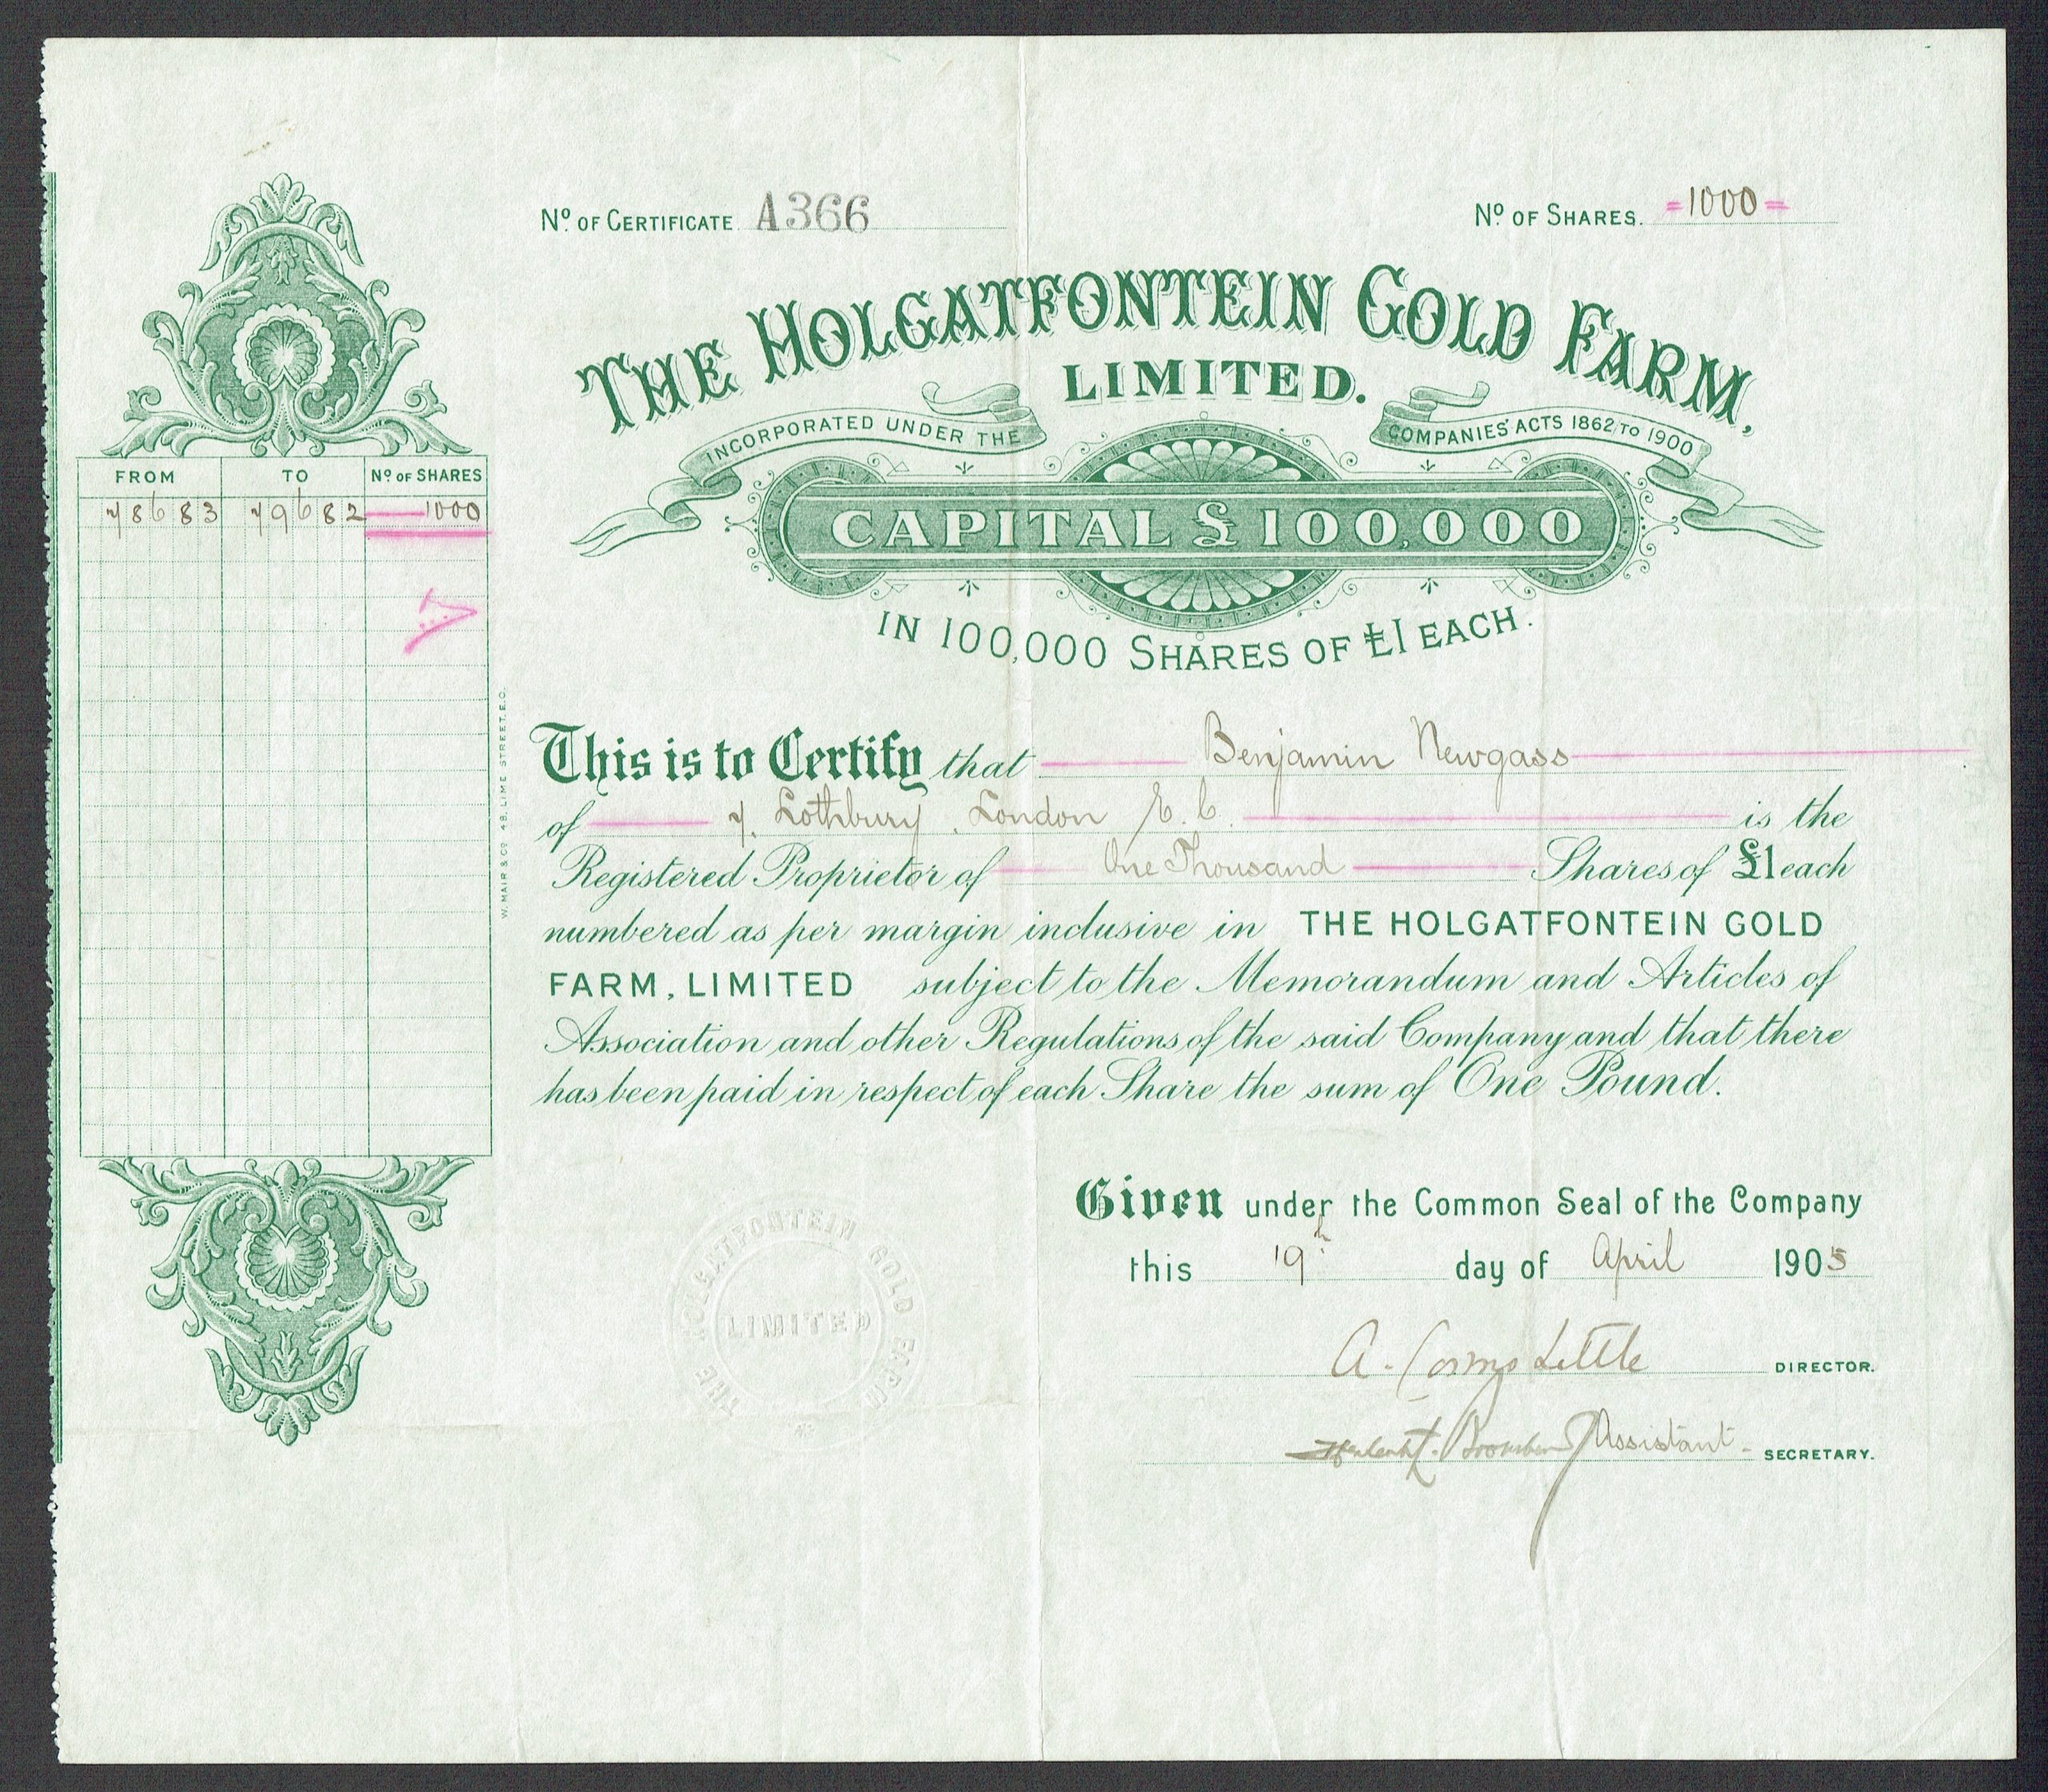 Nº OF CERTIFICATE A366
Nº OF SHARES. =1000=
THE HOLGATFONTEIN GOLD FARM,
LIMITED.
INCORPORATED UNDER THE COMPANIES' ACTS 1862 TO 1900
CAPITAL £100,000
IN 100,000 SHARES OF £1 EACH.
FROM TO Nº OF SHARES
78683 79682 1000
W. MAIR & Co 48, LIME STREET, E.C.
This is to Certify that Benjamin Newgass
of 7. Lothbury, London E.C. is the
Registered Proprietor of One Thousand Shares of £1 each
numbered as per margin inclusive in THE HOLGATFONTEIN GOLD
FARM, LIMITED subject to the Memorandum and Articles of
Association and other Regulations of the said Company and that there
has been paid in respect of each Share the sum of One Pound.
Given under the Common Seal of the Company
this 19th day of April 1905
A. Cosmo Little DIRECTOR.
Assistant SECRETARY.
THE HOLGATFONTEIN GOLD FARM
LIMITED